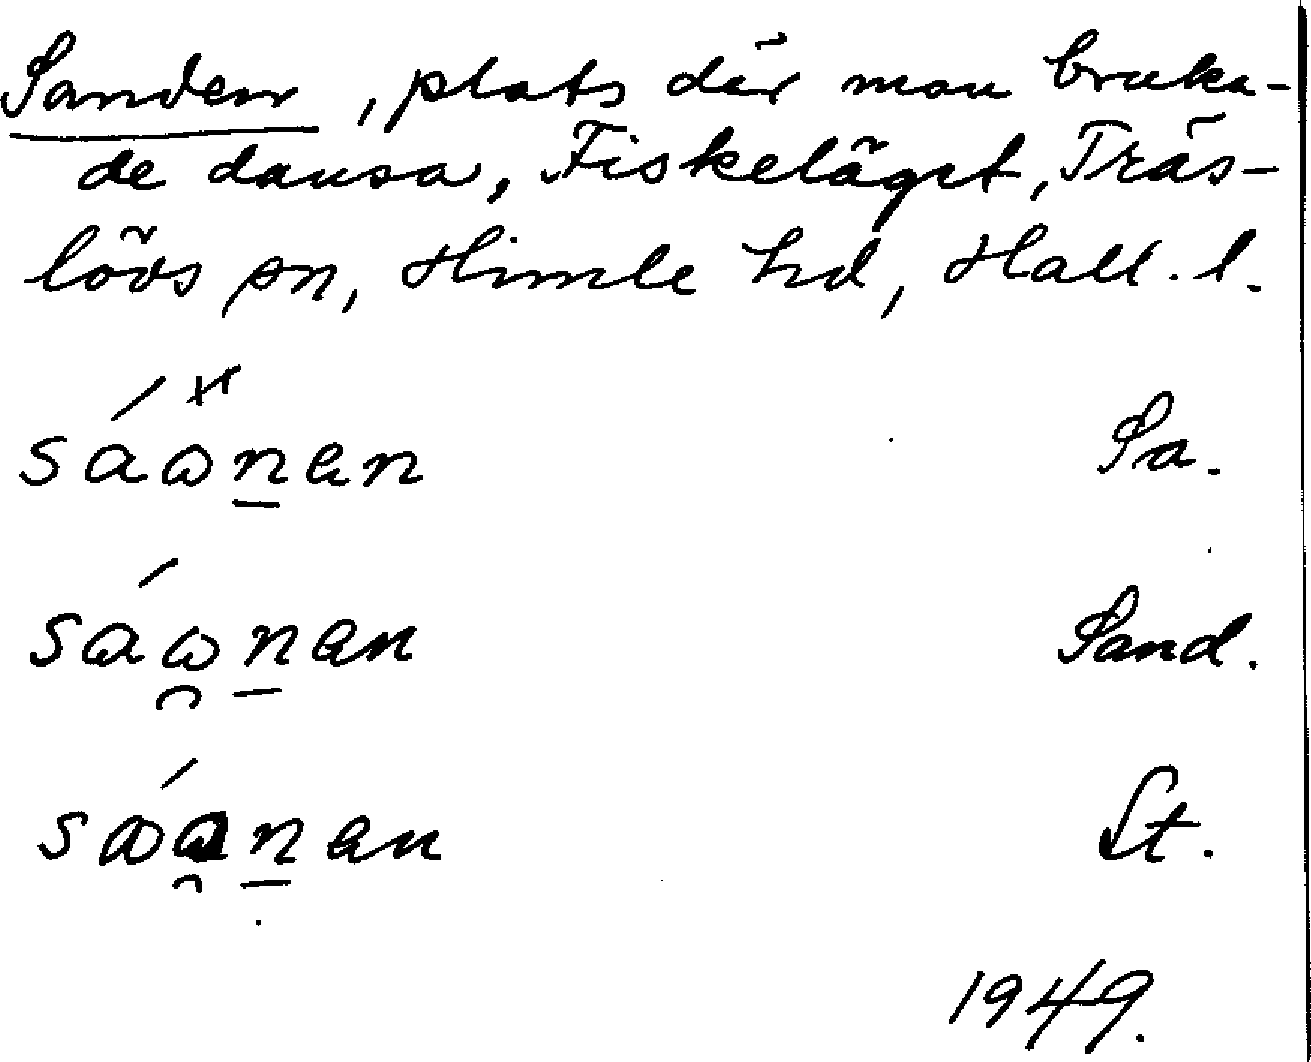 Sanden, plats där man bruka-
de dansa, Fiskeläget, Träs-
lövs sn, Himle hd, Hall. l.
Sa.
Sand.
St.
1949.